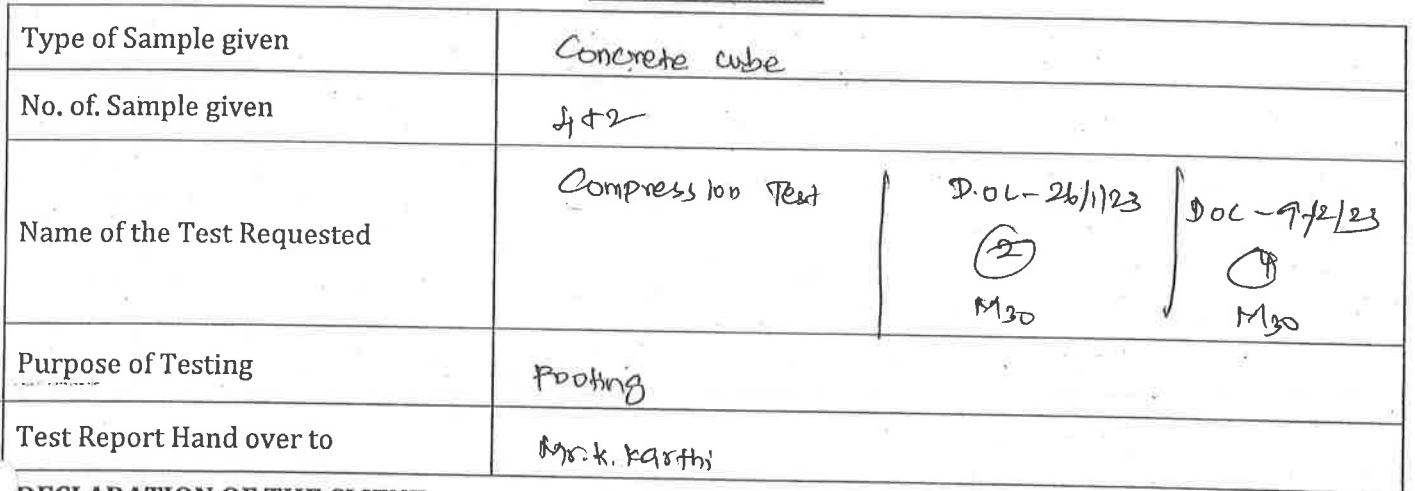 Type of Sample given
Concrete cube
No. of. Sample given
4+2
Name of the Test Requested
Compression Test
D.OC-26/1/23
2
M30
DOC-9/2/23
4
M30
Purpose of Testing
Footing
Test Report Hand over to
Mr.K.Karthi
DECLARATION OF THE